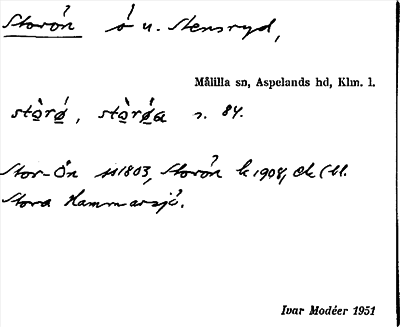 Storön ö u. Stensryd,
Målilla sn, Aspelands hd, Klm. l.
stòrǿ, stòrǿa s. 84.
Stor-Ön 1803, Storön k 1908, ek (bl.
Stora Hammarsjö.
Ivar Modéer 1951